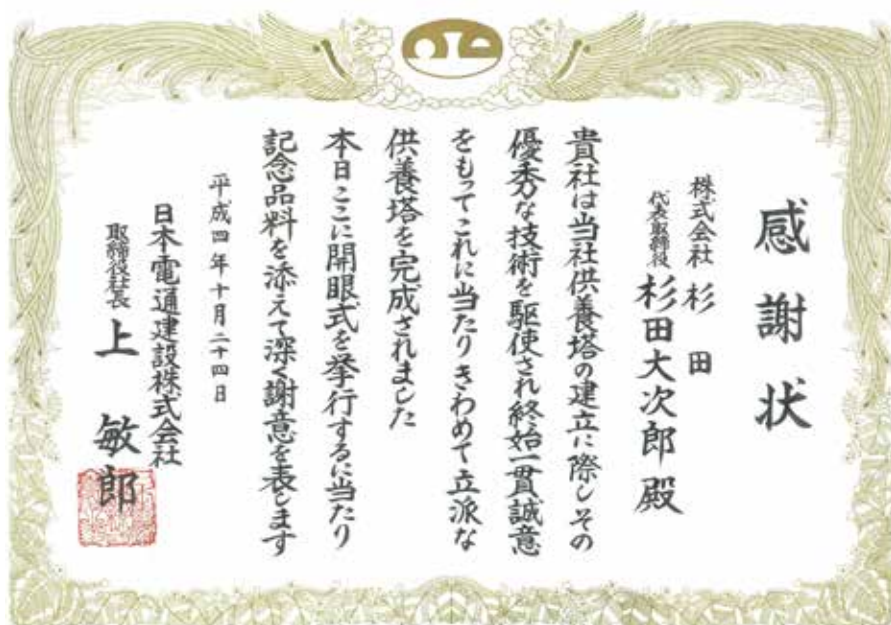 感謝状
株式会社 杉田
代表取締役 杉田大次郎殿
貴社は当社供養塔の建立に際しその
優秀な技術を駆使され終始一貫誠意
をもってこれに当たりきわめて立派な
供養塔を完成されました
本日ここに開眼式を挙行するに当たり
記念品料を添えて深く謝意を表します
平成四年十月二十四日
日本電通建設株式会社
取締役社長 上 敏郎